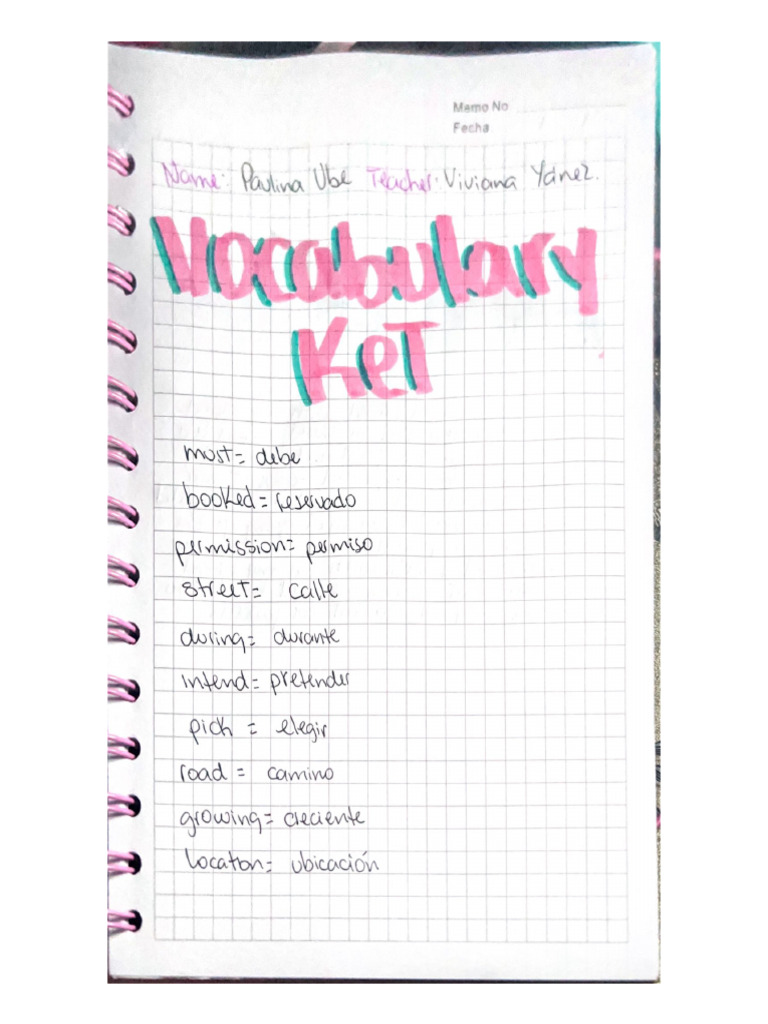 Memo No
Fecha
Name: Paulina Ube Teacher: Viviana Yánez.
Vocabulary
KeT
must = debe
booked = reservado
permission = permiso
street = calle
during = durante
intend = pretender
pick = elegir
road = camino
growing = creciente
location = ubicación